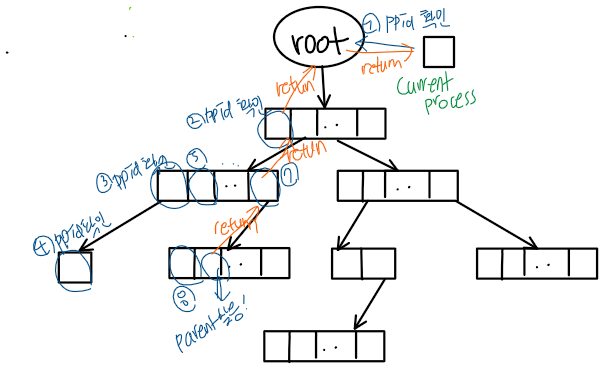 ① ppid 확인
root
return
current
process
return
② ppid 확인
return
③ ppid 확인
⑤
⑦
④ ppid 확인
return
⑧
parent
발견!